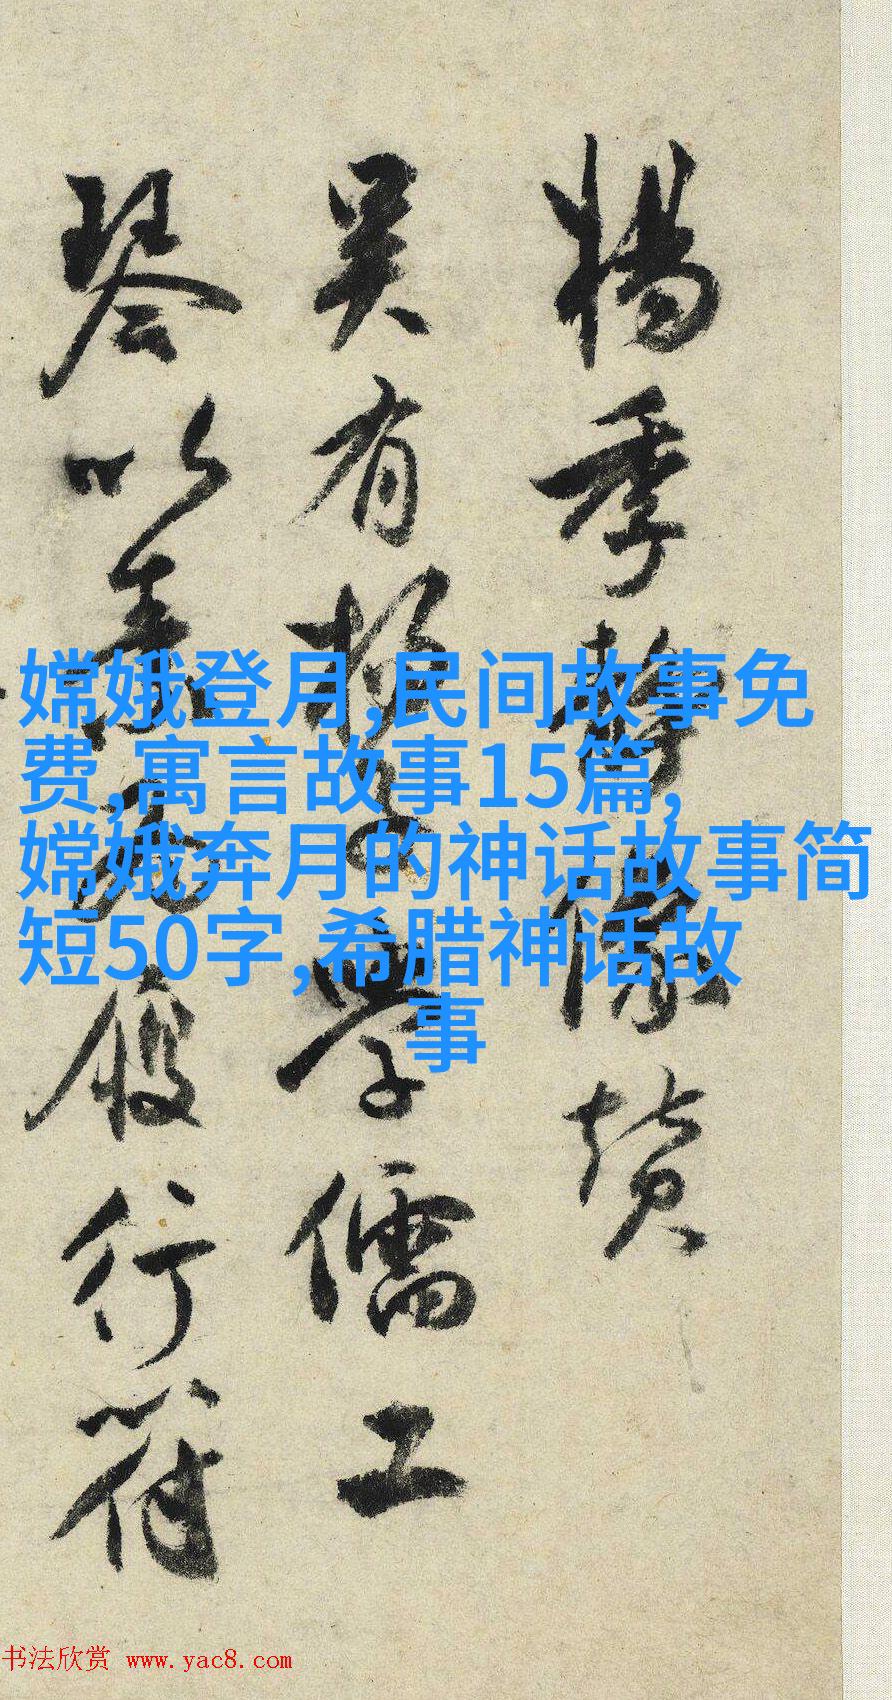 楊季靜像贊
吴有楊子學儒工
琴以養
履行符
嫦娥登月,民间故事免
费,寓言故事15篇,
嫦娥奔月的神话故事简
短50字,希腊神话故
事
书法欣赏 www.yac8.com